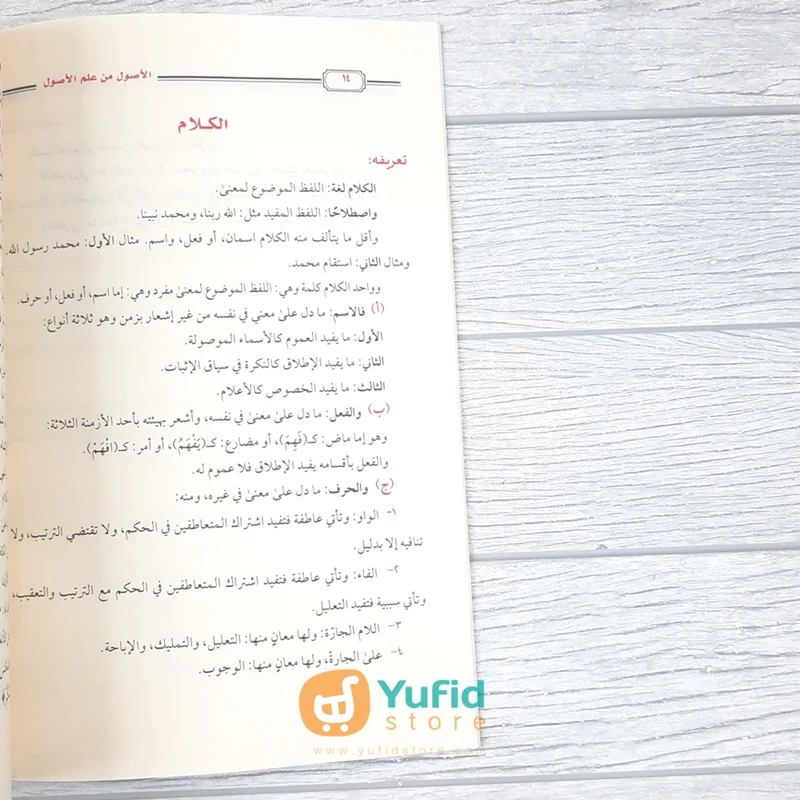 الأصول من علم الأصول
١٤
الكلام
تعريفه:
الكلام لغة: اللفظ الموضوع لمعنىٰ.
واصطلاحًا: اللفظ المفيد مثل: الله ربنا، ومحمد نبينا.
وأقل ما يتألف منه الكلام اسمان، أو فعل، واسم. مثال الأول: محمد رسول الله.
ومثال الثاني: استقام محمد.
وواحد الكلام كلمة وهي: اللفظ الموضوع لمعنىٰ مفرد وهي: إما اسم، أو فعل، أو حرف.
(أ) فالاسم: ما دل علىٰ معني في نفسه من غير إشعار بزمن وهو ثلاثة أنواع:
الأول: ما يفيد العموم كالأسماء الموصولة.
الثاني: ما يفيد الإطلاق كالنكرة في سياق الإثبات.
الثالث: ما يفيد الخصوص كالأعلام.
(ب) والفعل: ما دل علىٰ معنىٰ في نفسه، وأشعر بهيئته بأحد الأزمنة الثلاثة:
وهو إما ماض: كـ(فَهِمَ)، أو مضارع: كـ(يَفْهَمُ)، أو أمر: كـ(افْهَمْ).
والفعل بأقسامه يفيد الإطلاق فلا عموم له.
(ج) والحرف: ما دل علىٰ معنىٰ في غيره، ومنه:
١- الواو: وتأتي عاطفة فتفيد اشتراك المتعاطفين في الحكم، ولا تقتضي الترتيب، ولا
تنافيه إلا بدليل.
٢- الفاء: وتأتي عاطفة فتفيد اشتراك المتعاطفين في الحكم مع الترتيب والتعقيب،
وتأتي سببية فتفيد التعليل.
٣- اللام الجارّة: ولها معانٍ منها: التعليل، والتمليك، والإباحة.
٤- علىٰ الجارةّ، ولها معانٍ منها: الوجوب.
Yufid
store
www.yufidstore.com